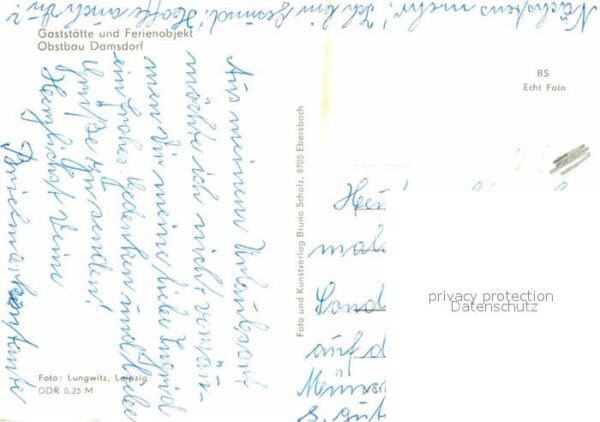 Nächstens mehr! Ich bin gesund! Hoffe auch Du?
Gaststätte und Ferienobjekt
Obstbau Damsdorf
Aus meinem Urlaubsort
möchte ich nicht versäu-
men Dir meine liebe Ingrid
ein frohes Gedenken und liebe
Grüße zu senden!
Herzlichst Deine
Briefmarkentante
Foto: Lungwitz, Leipzig
DDR 0,25 M
Foto und Kunstverlag Bruno Scholz, 8705 Ebersbach
BS
Echt Foto
mal
auf d
s. gut
privacy protection
Datenschutz